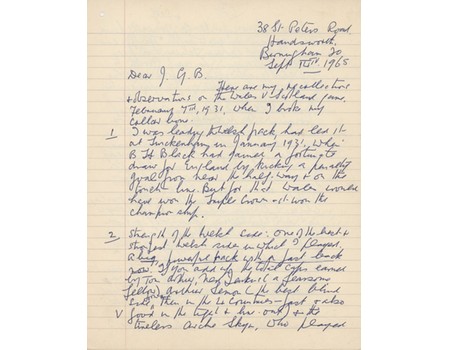 38 St Peters Road
Handsworth
Birmingham 20
Sept 1965
Dear J. G. B.
Here are my recollections
& observations on the Wales V Scotland game.
February 7th, 1931, when I broke my
collar bone.
1 I was leading Welsh pack, had led it
at Twickenham in January 1931, when
B H Black had gained a fortunate
draw for England by kicking a penalty
goal from near the half-way & on the
touch line. But for that Wales would
have won the Triple Crown & it won the
championship.
2 Strength of the Welsh side: one of the best &
strongest Welsh sides in which I played,
a big, powerful pack with a fast back
row. If you add up the total caps earned
by Tom Arthur, Ned Jenkins (a fearsome
fellow), Arthur Lemon (the best blind
side then in the 4 Countries - fast & also
V good in the tight & line-out) & the
timeless Archie Skym, who played